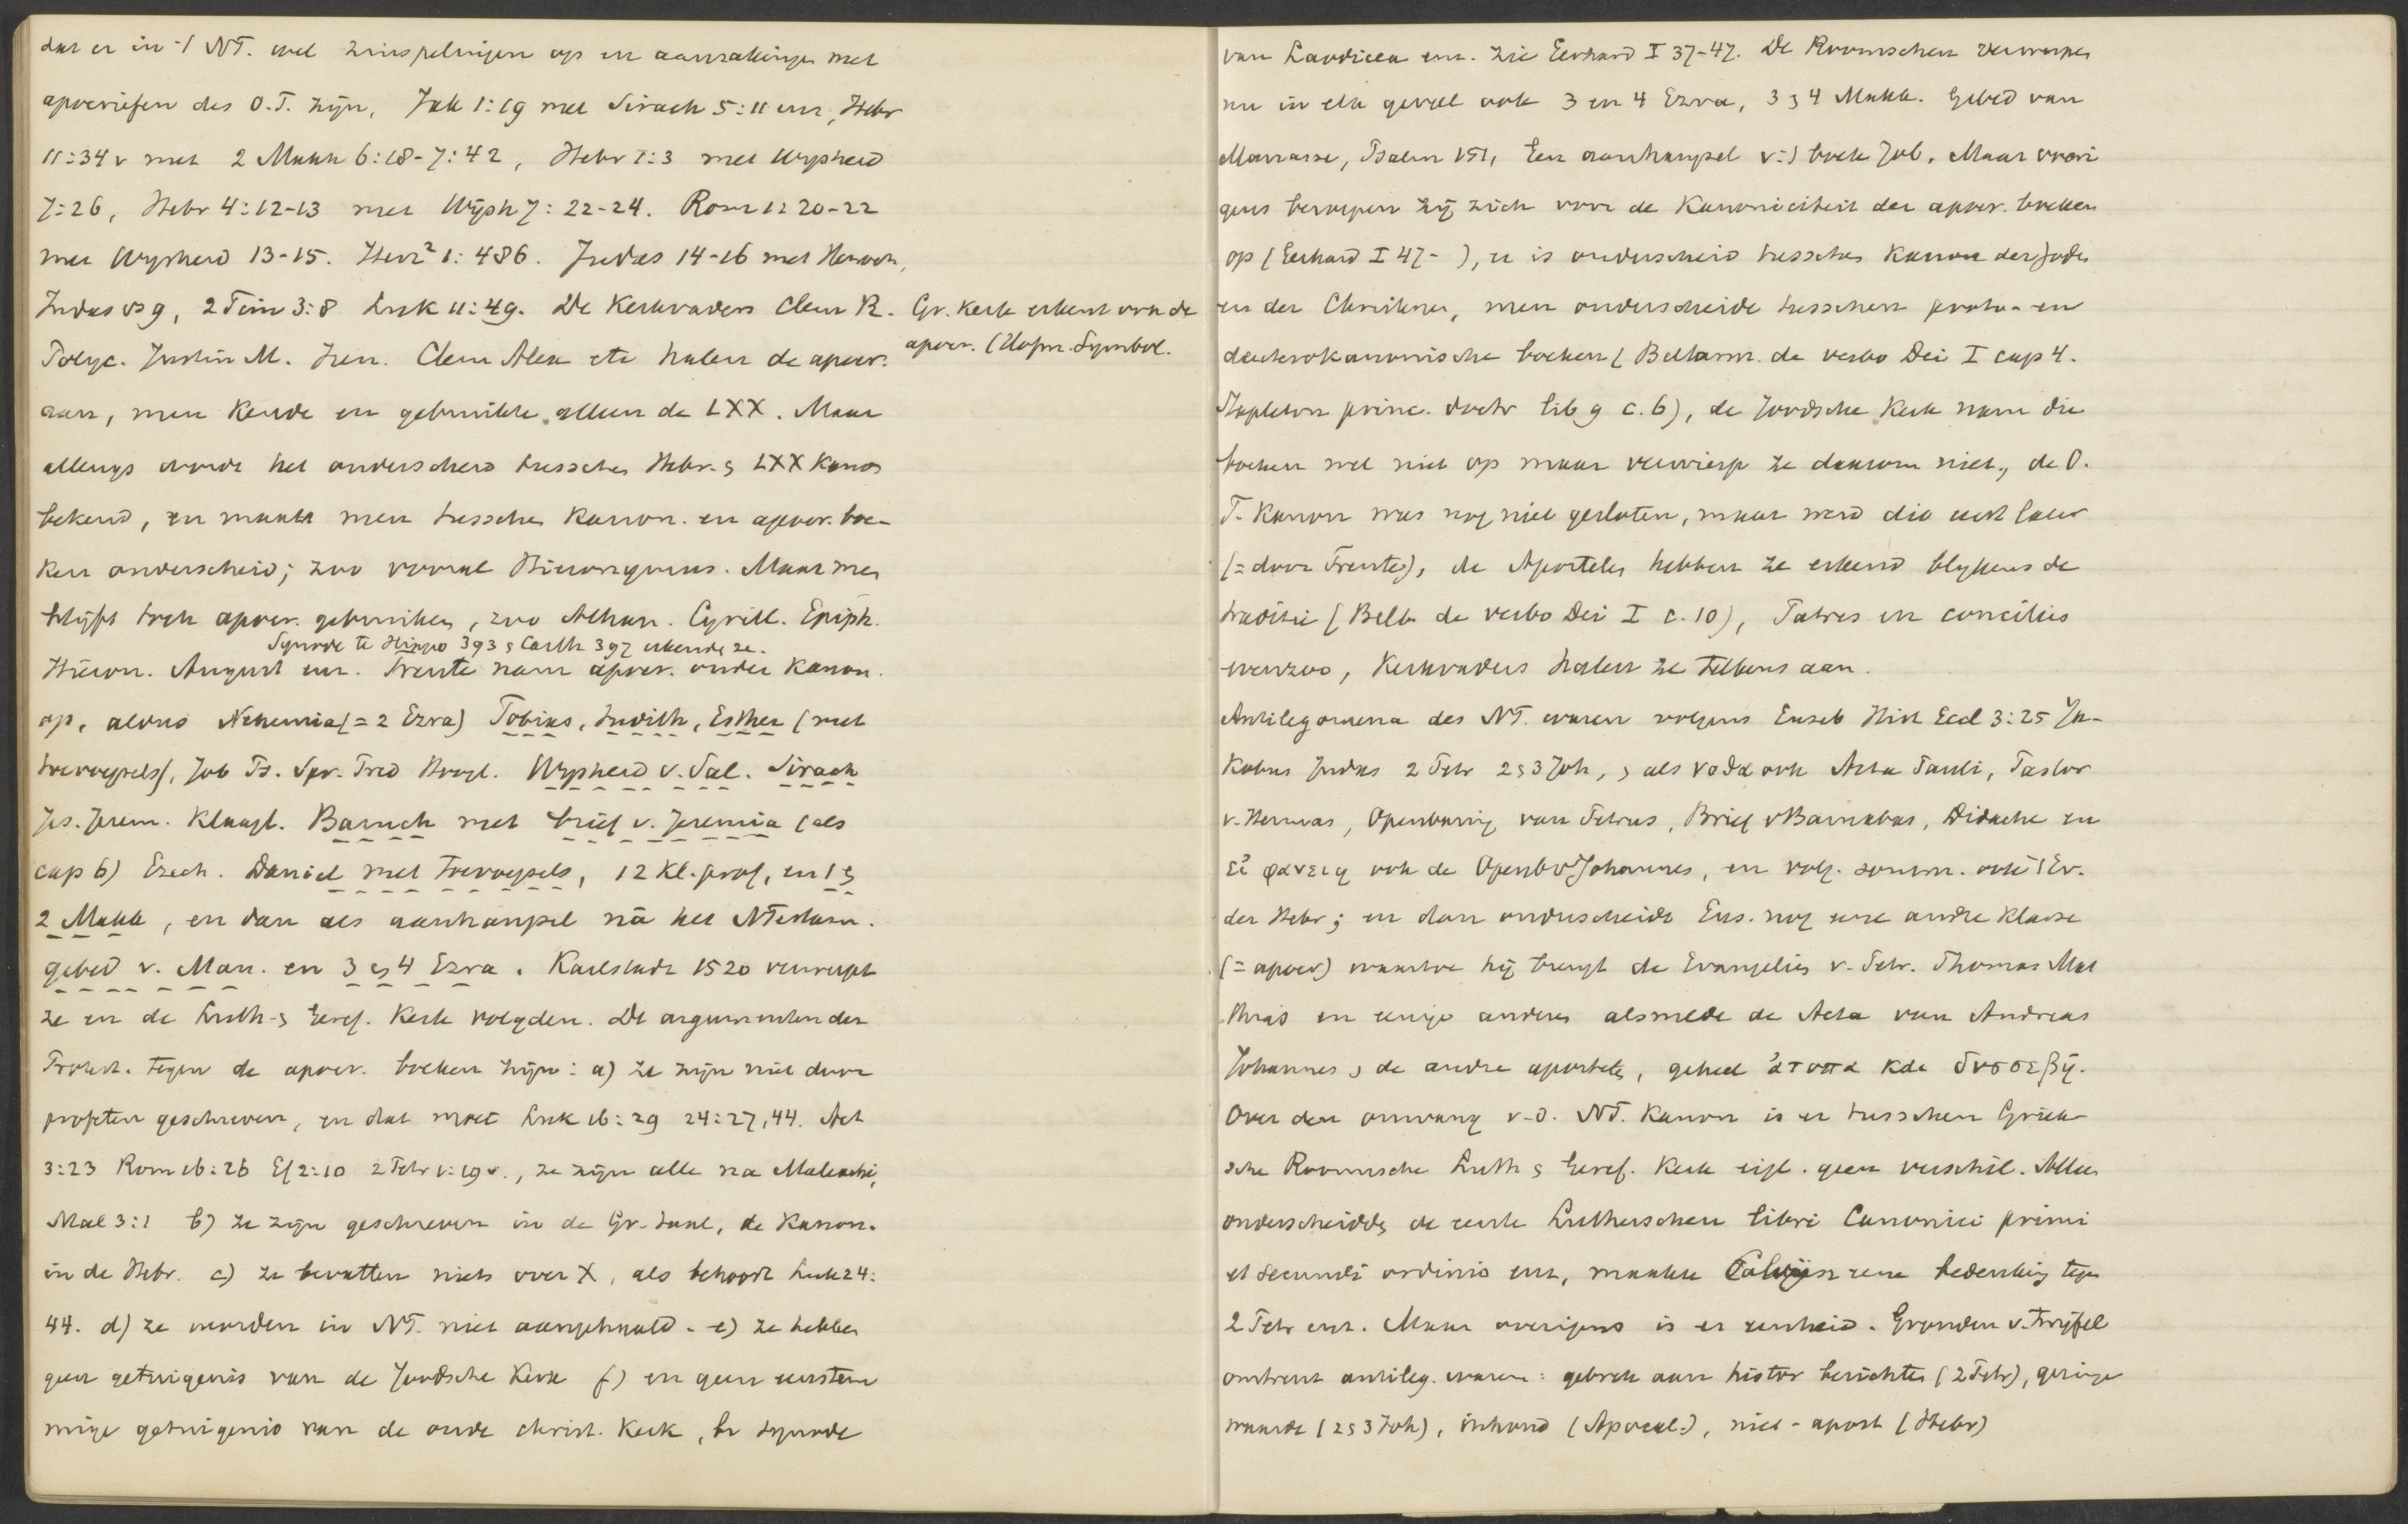 dat er in 't NT. wel zinspelingen op en aanrakingen met
apocriefen des O.T. zijn, Jak 1:19 met Sirach 5:11 enz, Hebr
11:34v met 2 Makk 6:18-7:42, Hebr 1:3 met Wijsheid
7:26, Hebr 4:12-13 met Wijsh 7:22-24. Rom 1:20-22
met Wijsheid 13-15. Herz² 1:486. Judas 14-16 met Henoch,
Judas vs 9, 2 Tim 3:8 Luk 11:49. De Kerkvaders Clem R.
Polyc. Justin M. Iren. Clem Alex etc halen de apocr.
aan, men kende en gebruikte alleen de LXX. Maar
allengs wordt het onderscheid tusschen Hebr. & LXX kanon
bekend, en maakt men tusschen kanon. en apocr. boe-
ken onderscheid; zoo vooral Hieronymus. Maar men
blijft toch apocr. gebruiken, zoo Athan. Cyrill. Epiph.
Synode te Hippo 393 & Carth 397 erkende ze.
Hieron. August enz. Trente nam apocr. onder kanon.
op, aldus Nehemia (= 2 Ezra) Tobias, Judith, Esther (met
toevoegsels), Job Ps. Spr. Pred Hoogl. Wijsheid v. Sal. Sirach
Jes. Jerem. Klaagl. Baruch met brief v. Jeremia (als
cap 6) Ezech. Daniel met toevoegsels, 12 kl. prof, en 1 &
2 Makk, en dan als aanhangsel nà het NTestam.
gebed v. Man. en 3 & 4 Ezra. Karlstadt 1520 verwerpt
ze en de Luth. & Geref. Kerk volgden. De argumenten der
Protest. tegen de apocr. boeken zijn: a) ze zijn niet door
profeten geschreven, en dat moet Luk 16:29 24:27,44. Act
3:23 Rom 16:26 Ef 2:10 2 Petr 1:19v., ze zijn alle na Maleachi,
Mal 3:1 b) ze zijn geschreven in de Gr. taal, de kanon.
in de Hebr. c) ze bevatten niets over X, als behoort Luk 24:
44. d) ze worden in NT. niet aangehaald. e) ze hebben
geen getuigenis van de Joodsche Kerk f) en geen eenstem
mige getuigenis van de oude christ. Kerk, bv synode
Gr. kerk erkent ook de
apocr. (Hofm. Symbol.
van Laodicea enz. Zie Gerhard I 37-47. De Roomschen verwerpen
nu in elk geval ook 3 en 4 Ezra, 3 & 4 Makk. Gebed van
Manasse, Psalm 151, Een aanhangsel v: 't boek Job. Maar overi
gens beroepen zij zich voor de kanoniciteit der apocr. boeken
op (Gerhard I 47- ), er is onderscheid tusschen kanon der Joden
en der Christenen, men onderscheide tusschen proto- en
deuterokanonische boeken (Bellarm. de verbo Dei I cap 4.
Stapleton princ. doctr lib 9 c. 6), de Joodsche Kerk nam die
boeken wel niet op maar verwierp ze daarom niet, de O.
T. Kanon was nog niet gesloten, maar werd die eerst later
(= door Trente), de Apostelen hebben ze erkend blijkens de
traditie (Bell. de verbo Dei I c. 10), Patres en concilies
evenzoo, Kerkvaders halen ze telkens aan.
Antilegomena des NT. waren volgens Euseb Hist Eccl 3:25 Ja-
kobus Judas 2 Petr 2 & 3 Joh, & als νοθα ook Acta Pauli, Pastor
v. Hermas, Openbaring van Petrus, Brief v Barnabas, Didache en
εἰ φανειη ook de Openb v Johannes, en volg. somm. ook 't Ev.
der Hebr; en dan onderscheidt Eus. nog eene andre klasse
(= apocr) waartoe hij brengt de Evangeliën v. Petr. Thomas Mat
thias en eenige anderen alsmede de Acta van Andreas
Johannes & de andre apostelen, geheel ἀτοπα και δυσσεβῆ.
Over den omvang v. d. NT. Kanon is er tusschen Griek
sche Roomsche Luth & Geref. Kerk eigl. geen verschil. Alleen
onderscheidde de eerste Lutherschen libri Canonici primi
et secundi ordinis enz, maakte Calvijn eene bedenking tegen
2 Petr enz. Maar overigens is er eenheid. Gronden v. twijfel
omtrent antileg. waren: gebrek aan histor berichten (2 Petr), geringe
waarde (2 & 3 Joh), inhoud (Apocal.), niet-apost (Hebr)